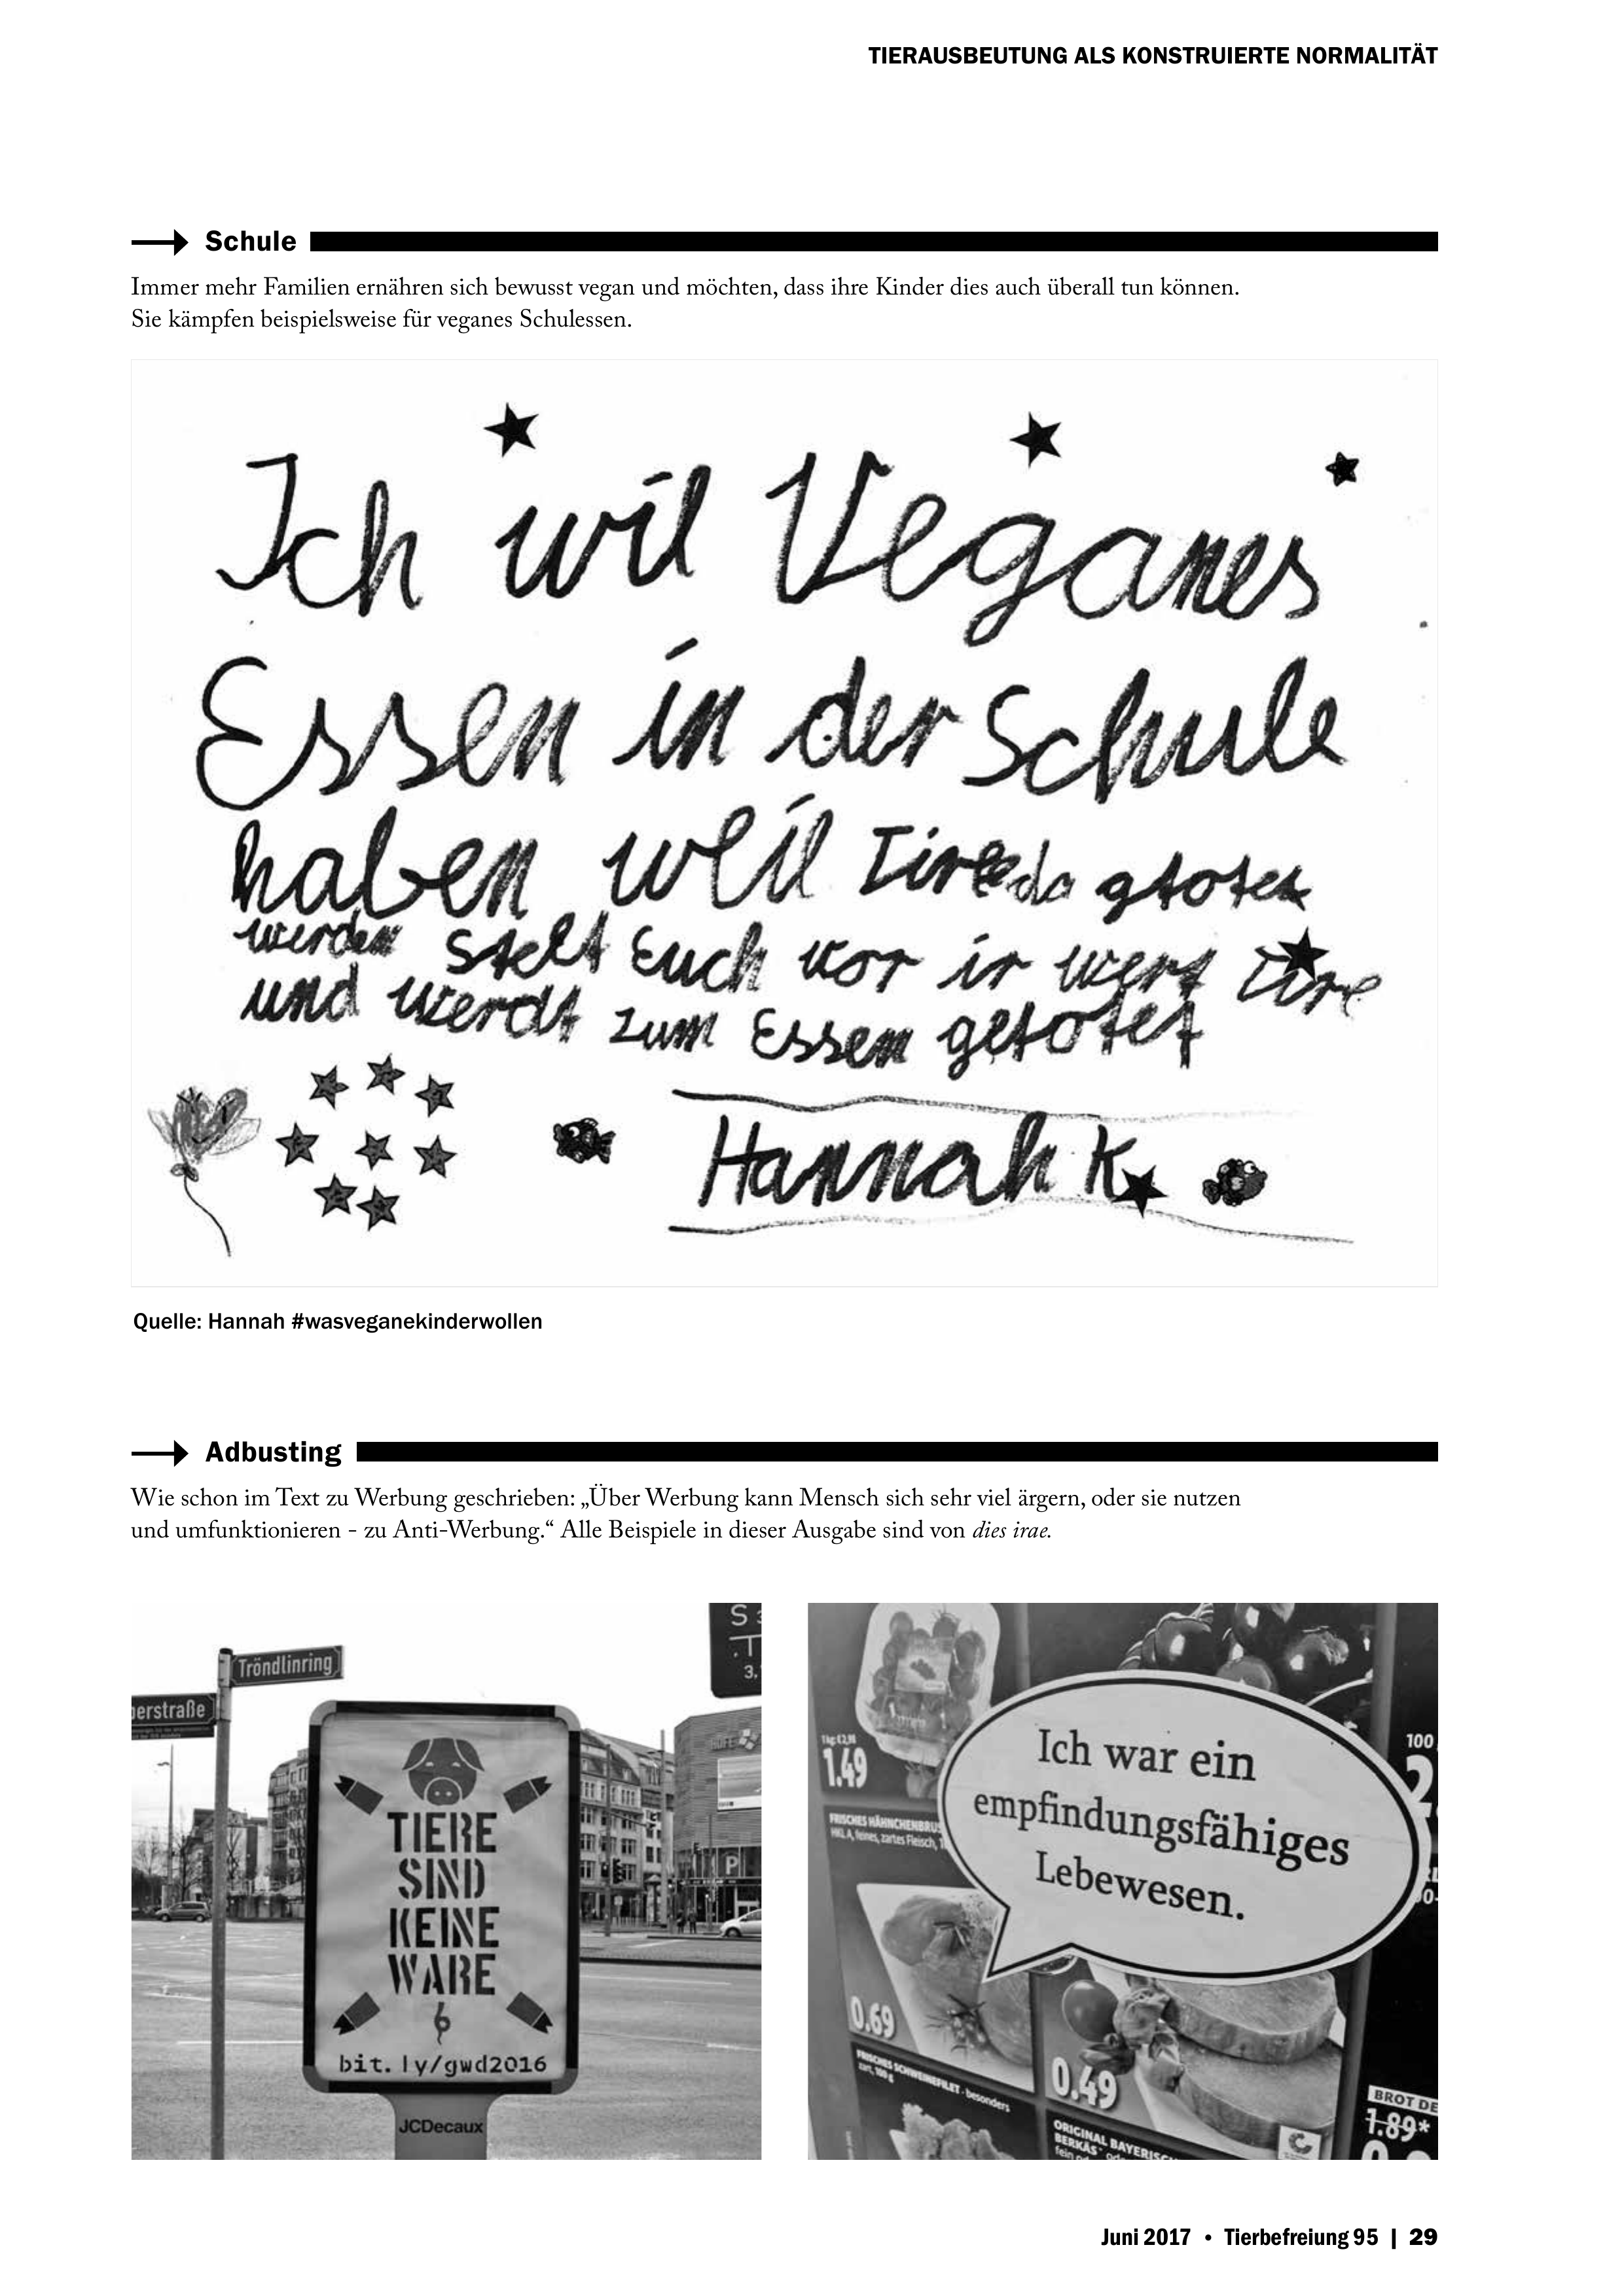 TIERAUSBEUTUNG ALS KONSTRUIERTE NORMALITÄT
Schule
Immer mehr Familien ernähren sich bewusst vegan und möchten, dass ihre Kinder dies auch überall tun können.
Sie kämpfen beispielsweise für veganes Schulessen.
Ich wil Veganes
Essen in der Schule
haben weil Tire da gtoten
werden stellt Euch vor ir wert Tire
und werdt zum Essen getotet
Hannah K.
Quelle: Hannah #wasveganekinderwollen
Adbusting
Wie schon im Text zu Werbung geschrieben: „Über Werbung kann Mensch sich sehr viel ärgern, oder sie nutzen
und umfunktionieren - zu Anti-Werbung.“ Alle Beispiele in dieser Ausgabe sind von dies irae.
Tröndlinring
erstraße
TIERE
SIND
KEINE
WARE
bit.ly/gwd2016
JCDecaux
P
S
3,
Ich war ein
empfindungsfähiges
Lebewesen.
1kg €2,98
1.49
FRISCHES HÄHNCHENBRUS
HKL A, feines, zartes Fleisch,
100
2
0.69
FRISCHES SCHWEINEFILET - besonders
zart, 100 g
0.49
ORIGINAL BAYERISC
BERKÄS
BROT DE
1.89*
Juni 2017 • Tierbefreiung 95 | 29